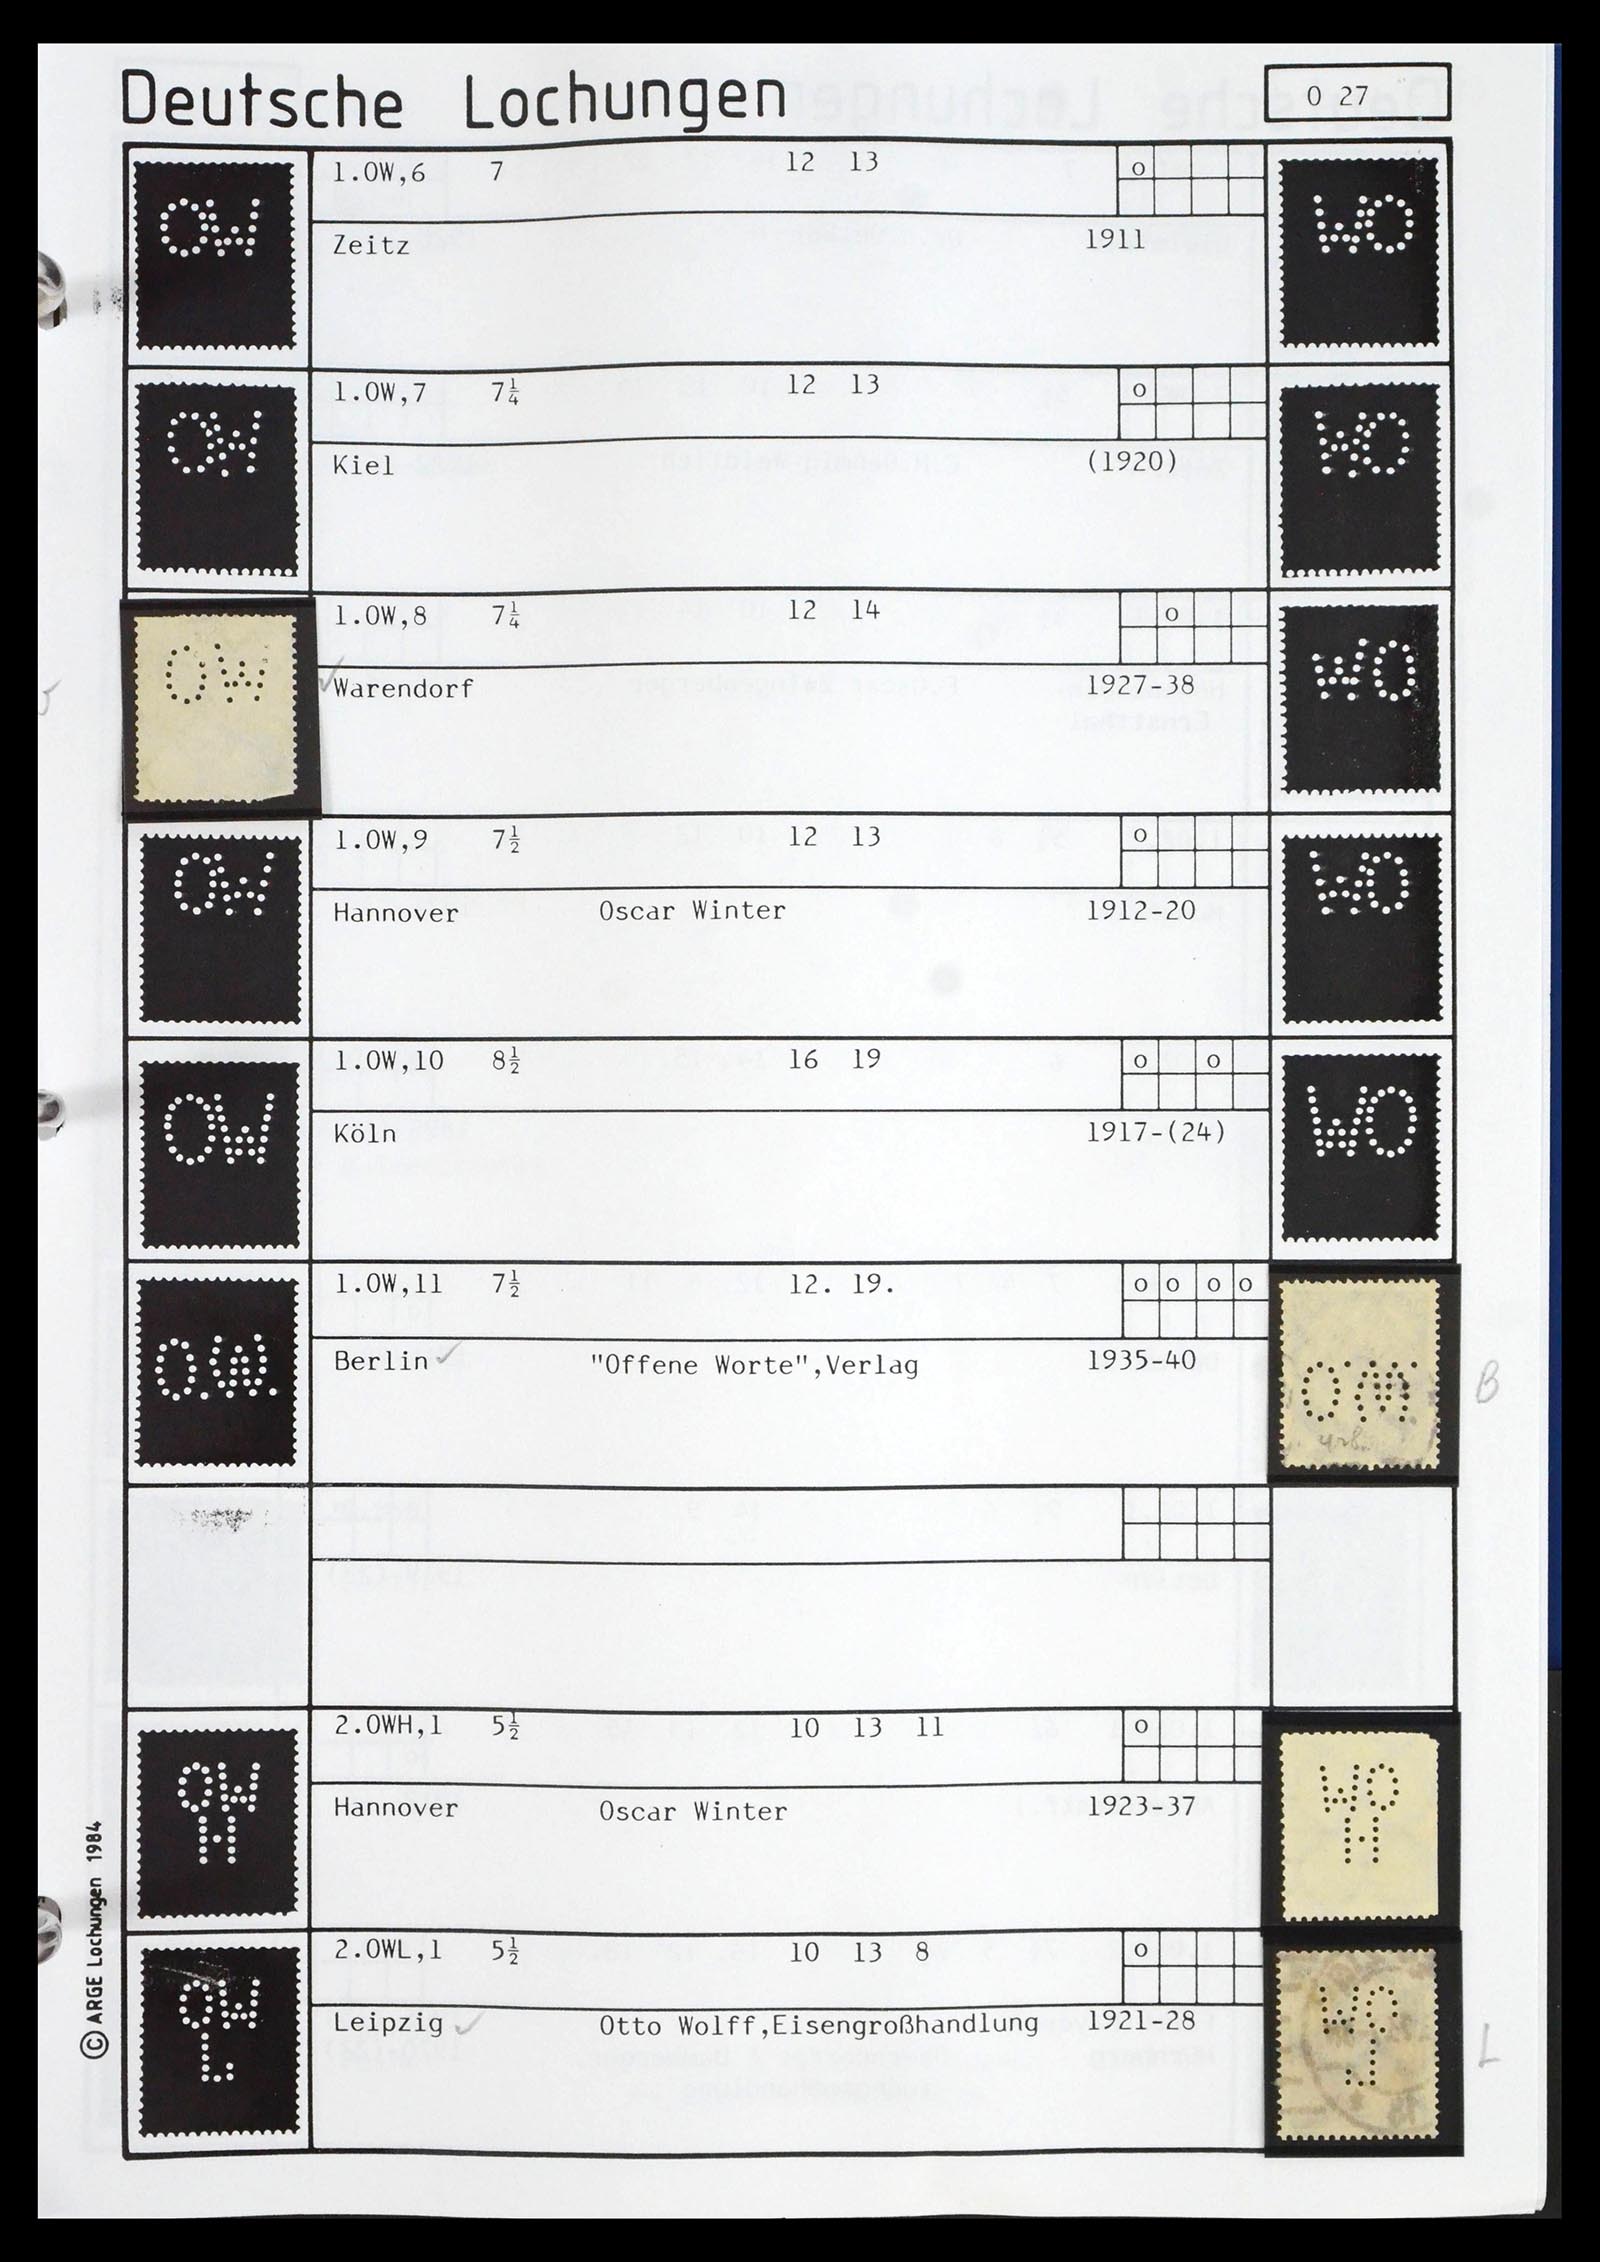 Deutsche Lochungen
O 27
OW
1.OW,6 7 12 13 o
WO
Zeitz 1911
OW
1.OW,7 7¼ 12 13 o
WO
Kiel (1920)
OW
1.OW,8 7¼ 12 14 o
WO
✓Warendorf 1927-38
OW
1.OW,9 7½ 12 13 o
WO
Hannover Oscar Winter 1912-20
OW
1.OW,10 8½ 16 19 o o
WO
Köln 1917-(24)
O.W.
1.OW,11 7½ 12. 19. o o o o
Berlin ✓ "Offene Worte",Verlag 1935-40
B
OW
H
2.OWH,1 5½ 10 13 11 o
WO
H
Hannover Oscar Winter 1923-37
OW
L
2.OWL,1 5½ 10 13 8 o
Leipzig ✓ Otto Wolff,Eisengroßhandlung 1921-28
L
© ARGE Lochungen 1984